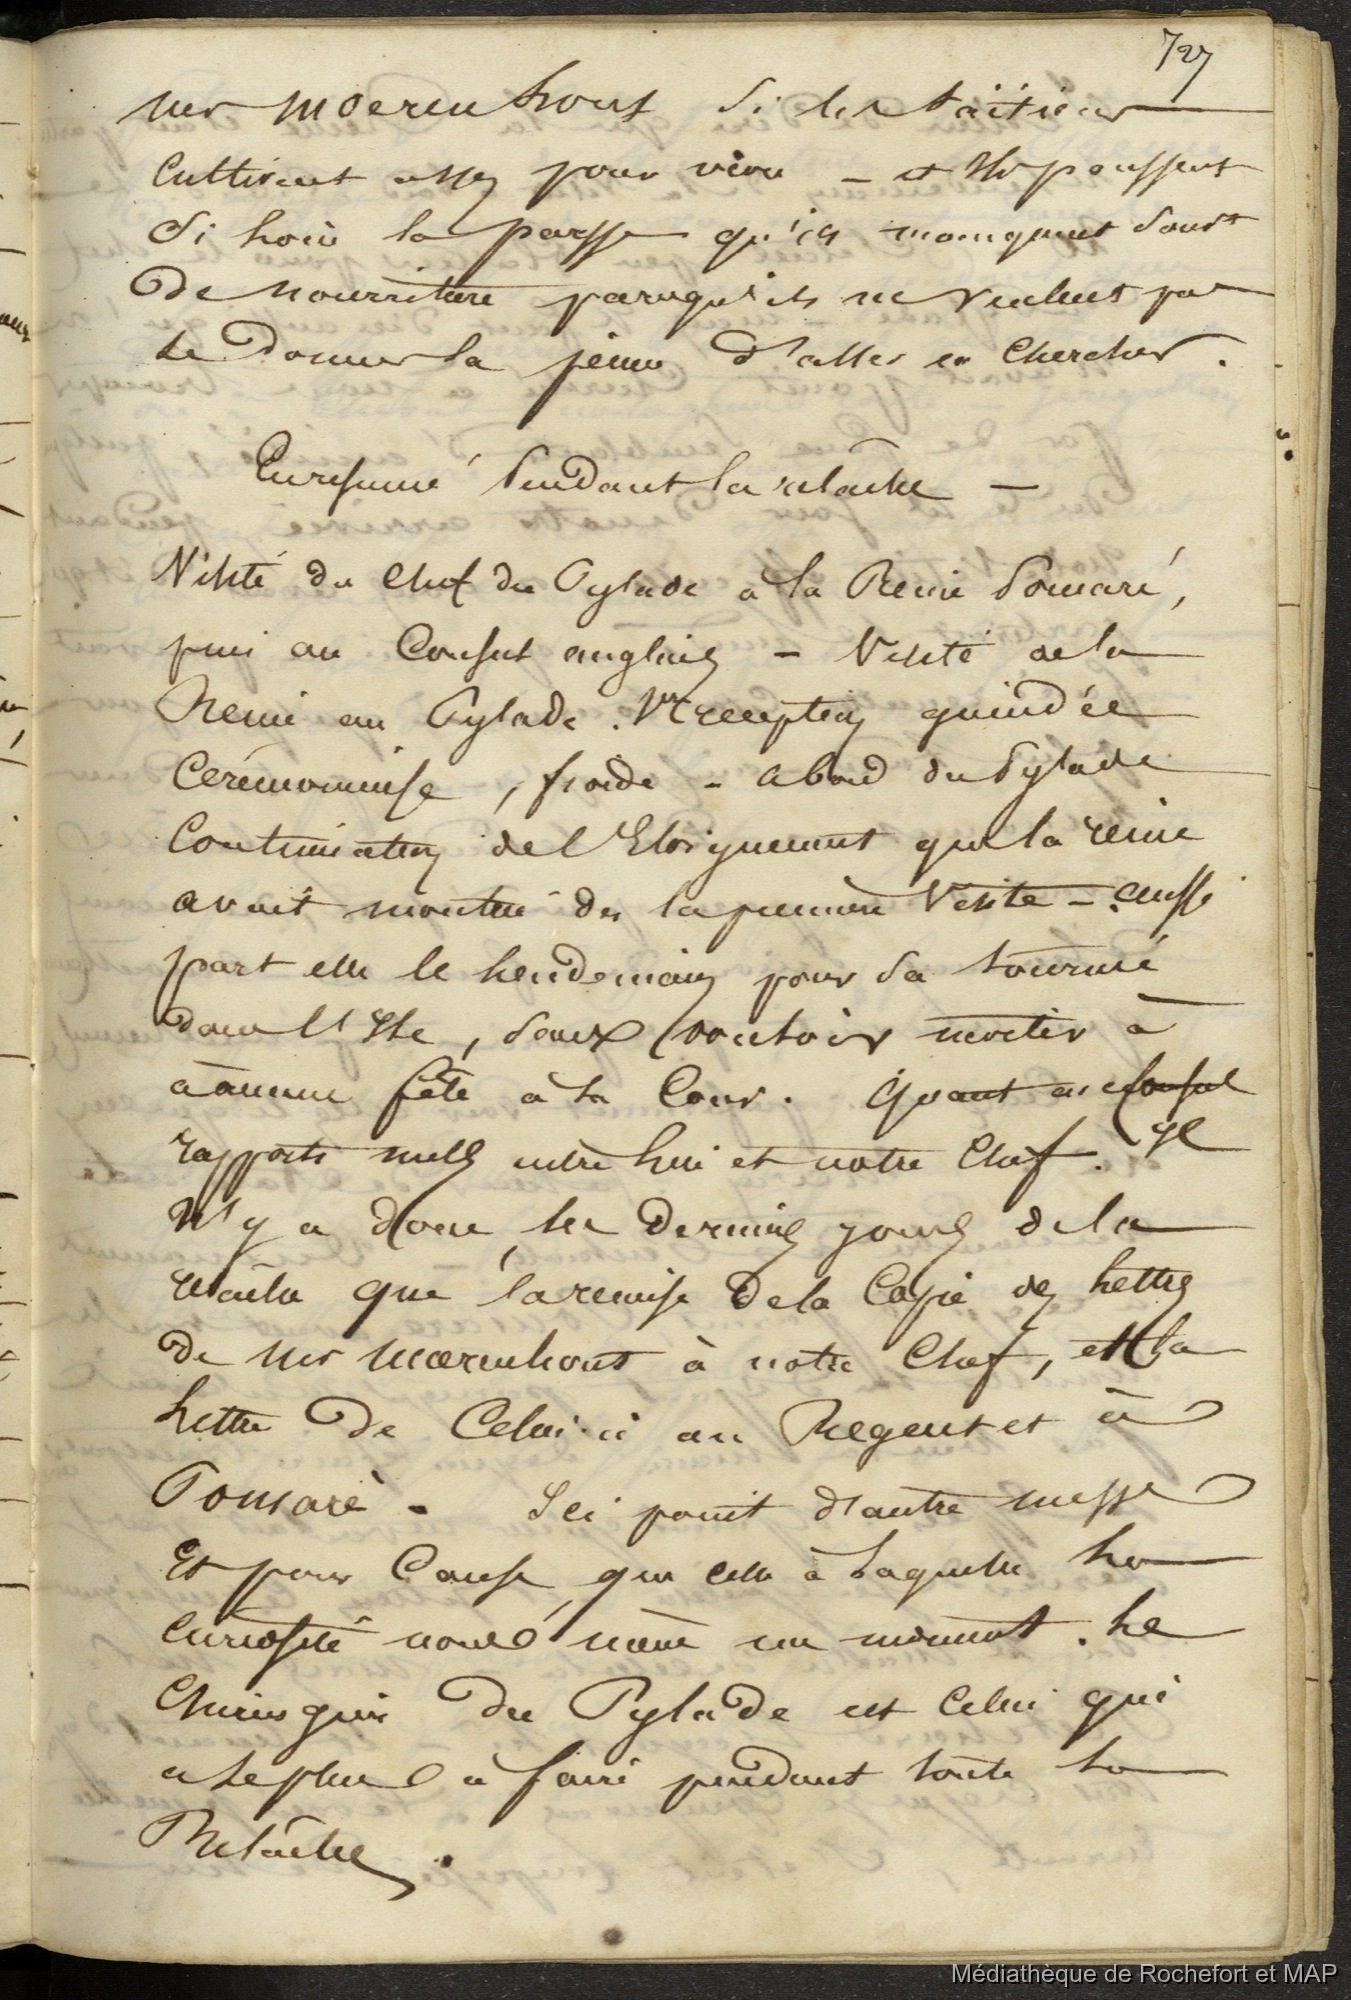 727
Mr Moerenhout si les taïtiens
Cultivent assez pour vivre - et Ils poussent
Si loin la paresse qu'ils manquent souvt
De nourriture parcequ'ils ne veulent pas
se Donner la peine d'aller en chercher.
En résumé Pendant la relâche -
Visite du Chef du Pylade à la Reine Pomaré,
puis au Consul anglais - Visite de la
Reine au Pylade. Réception guindée
Cérémonieuse, froide - abord du Pylade
Continuation de l'Eloignement que la reine
avait montré dès la première Visite - aussi
part elle le lendemain pour sa tournée
dans l'Ile, sans vouloir inviter à
aucune fête à la Cour. Quant au Consul
rapports nuls entre lui et notre Chef. Il
N'y a donc les derniers jours de la
relâche que la remise de la Copie des lettres
De Mr Moerenhout à notre Chef, et la
lettre De Celui-ci au Regent et à
Pomaré - Ici point d'autre messe
Et pour Cause, que celle à laquelle la
curiosité nous mène un moment. Le
Chirurgien Du Pylade est Celui qui
a le plus à faire pendant toute la
Relâche.
Médiathèque de Rochefort et MAP